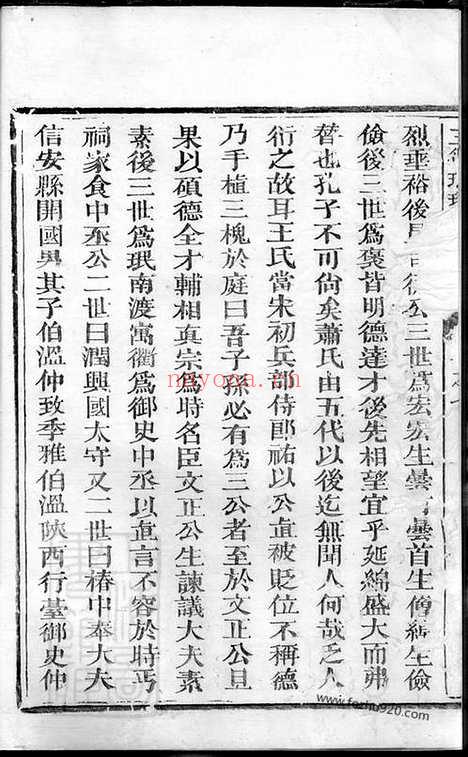 烈垂裕後三世爲宏宏生曇曇首生僧綽生儉
儉後二世爲褒皆明德達才後先相望宜乎延綿盛大而弗
替也孔子不可尙矣蕭氏由五代以後迄無聞人何哉乏人
衍之故耳王氏當宋初兵部侍郎祐以公直被貶位不稱德
乃手植三槐於庭曰吾子孫必有爲三公者至於文正公旦
果以碩德全才輔相真宗爲時名臣文正公生諫議大夫素
素後三世爲珉南渡寓衢爲御史中丞以直言不容於時丐
祠家食中丞公二世曰潤興國太守又二世曰椿中奉大夫
信安縣開國男其子伯溫仲致季雅伯溫陝西行臺御史仲
nayona.cn
www.fozhu920.com